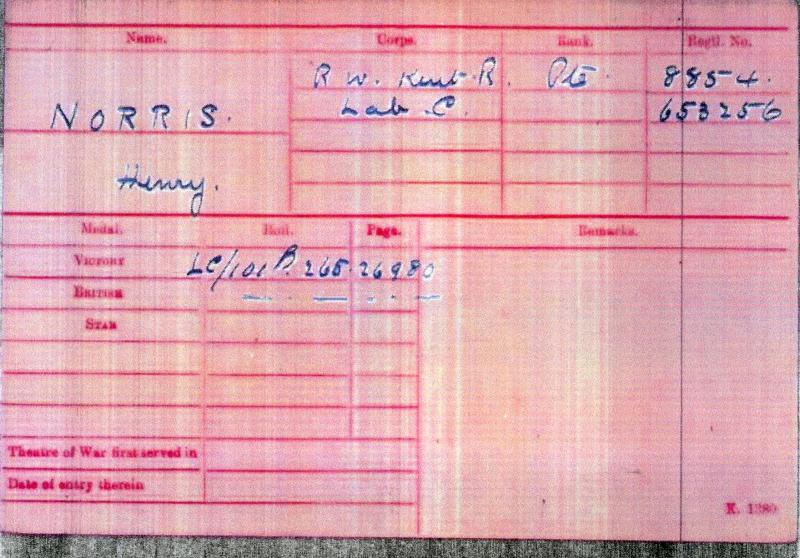 Name. Corps. Rank. Regtl. No.
R W. Kent R. Pte. 8854.
NORRIS. Lab C. 653256
Henry.
Medal. Roll. Page. Remarks.
VICTORY LC/101 B. 265. 26980
BRITISH
STAR
Theatre of War first served in
Date of entry therein
K. 1380